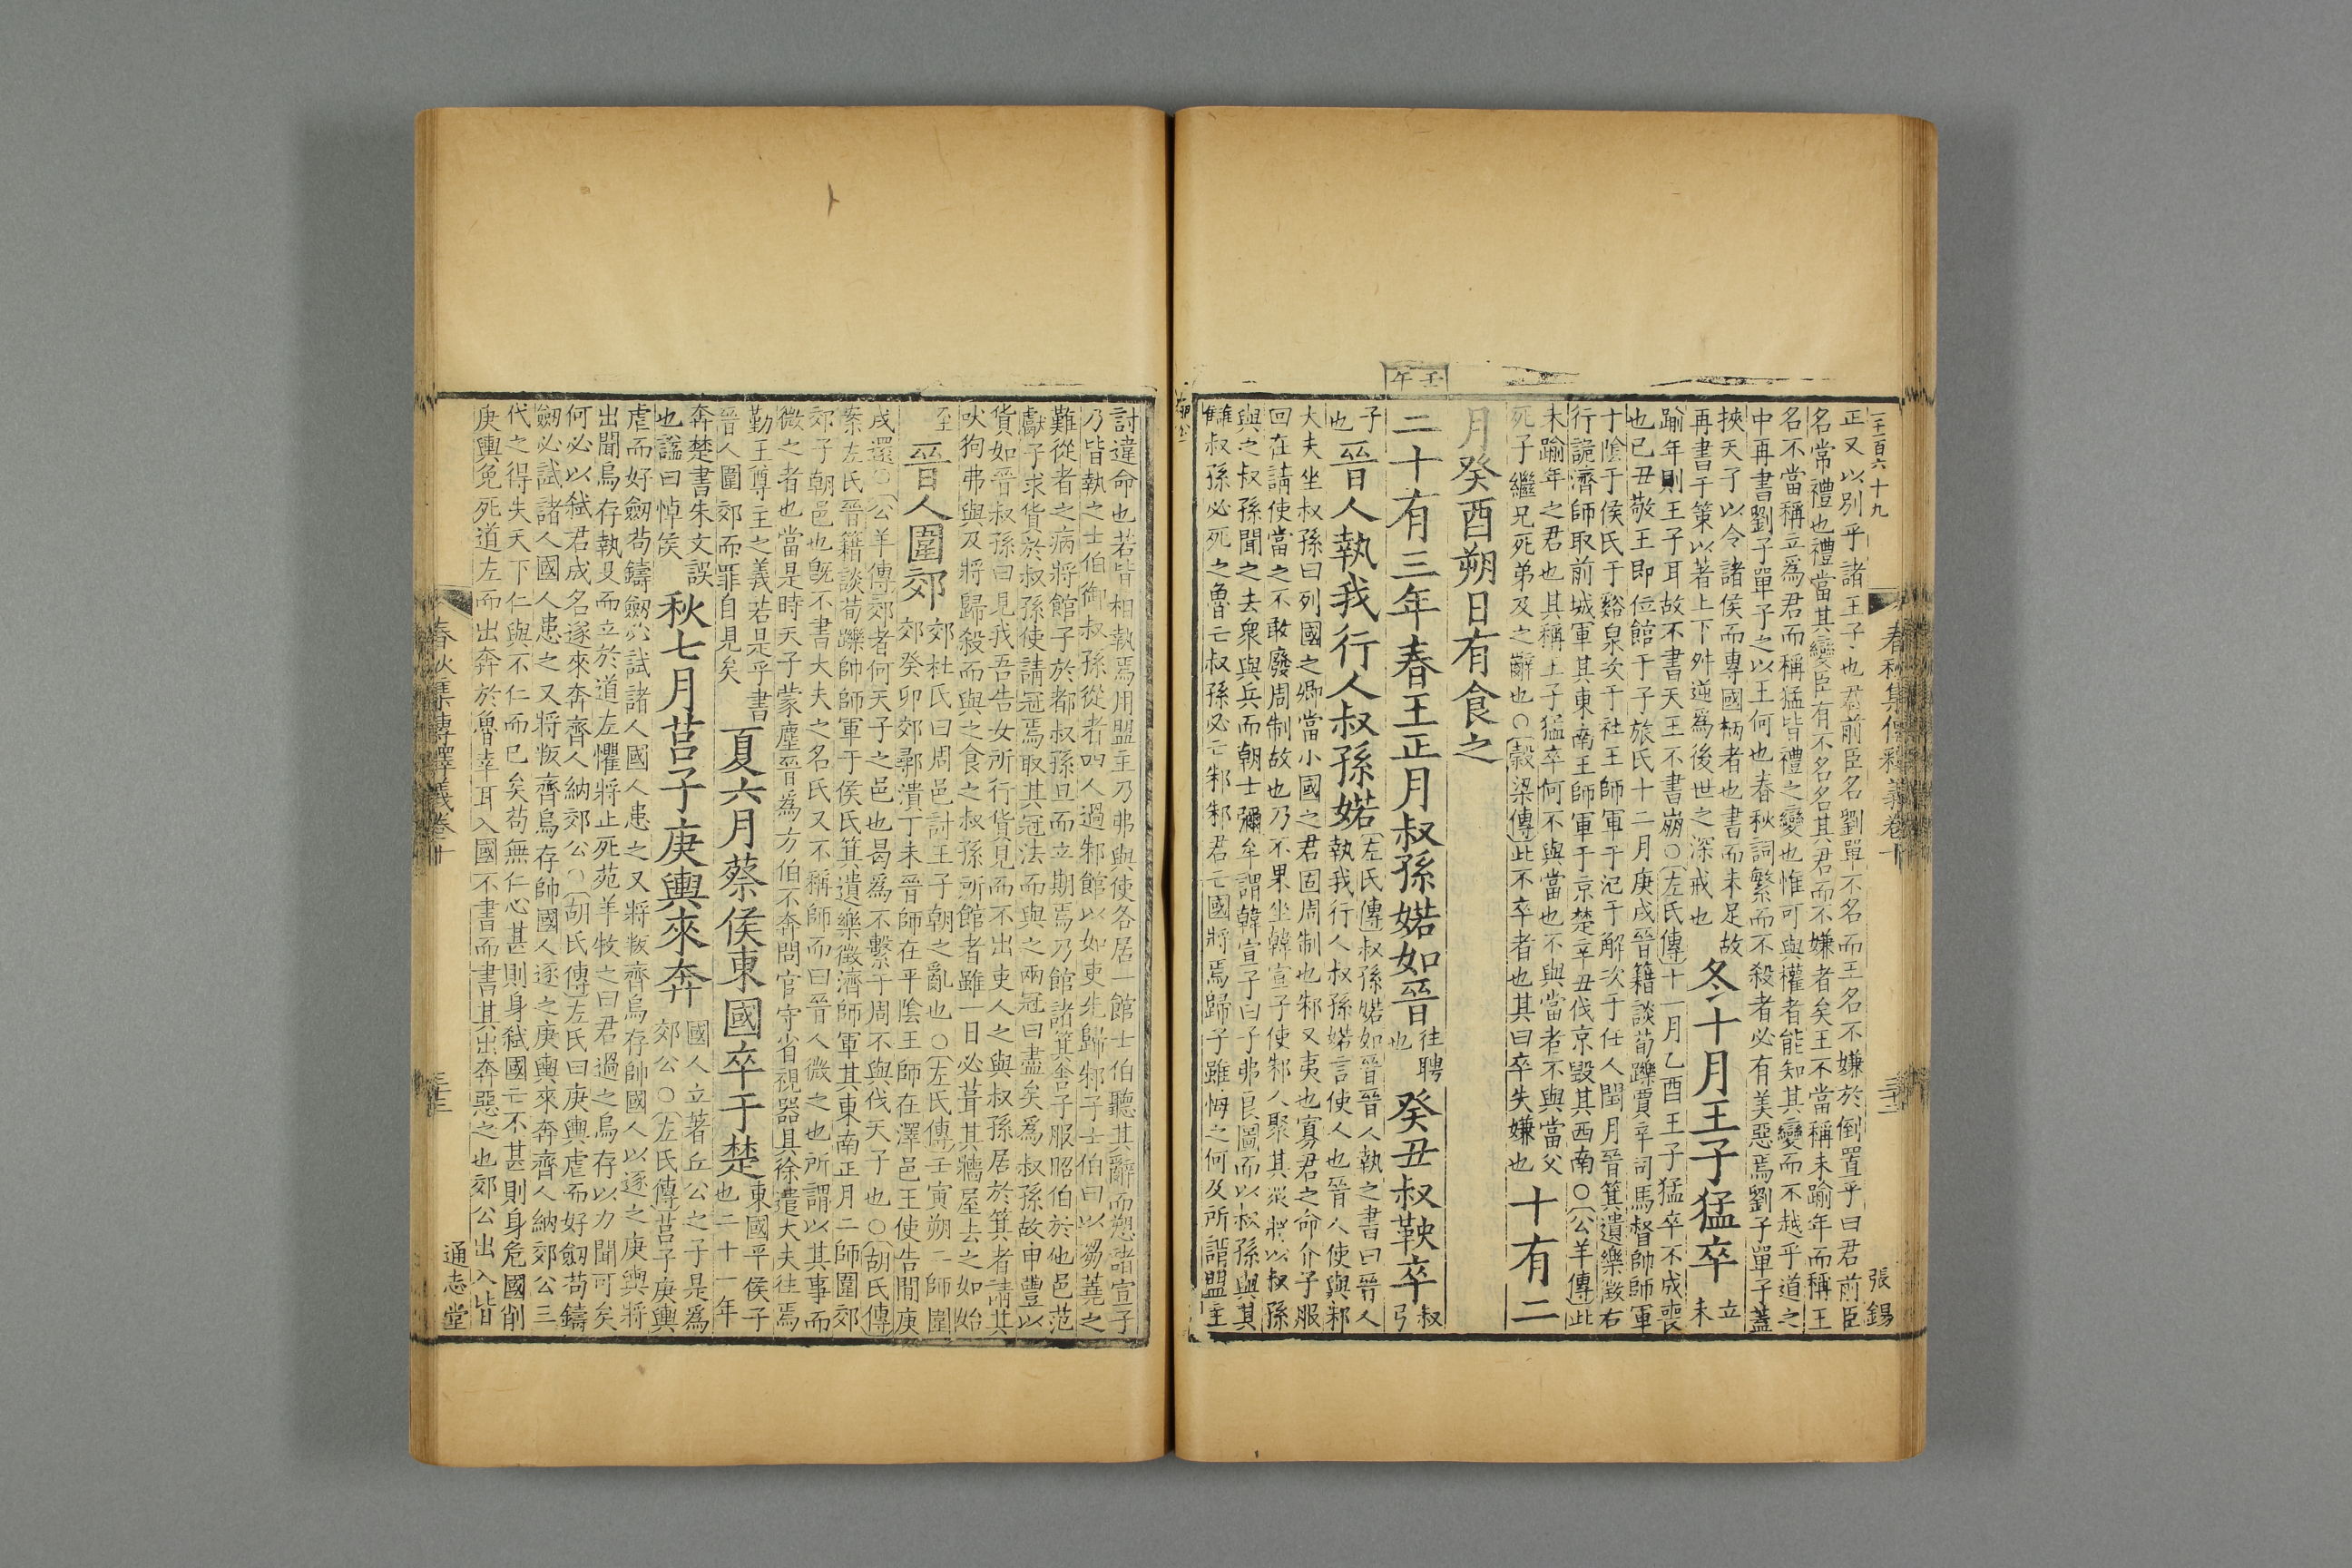 二千二百六十九
張錫
正又以別乎諸王子也君前臣名劉單不名而王名不嫌於倒置乎曰君前臣
名常禮也禮當其變臣有不名名其君而不嫌者矣王不當稱未踰年而稱王
名不當稱立為君而稱猛皆禮之變也惟可與權者能知其變而不越乎道之
中再書劉子單子之以王何也春秋詞繁而不殺者必有美惡焉劉子單子蓋
挾天子以令諸侯而專國柄者也書而未足故
再書于策以著上下舛逆為後世之深戒也
冬十月王子猛卒
立
未
踰年則王子耳故不書天王不書崩○左氏傳十一月乙酉王子猛卒不成喪
也已丑敬王即位館于子旅氏十二月庚戌晉籍談荀躒賈辛司馬督帥師軍
于陰于侯氏于谿泉次于社王師軍于氾于解次于任人閏月晉箕遺樂徵右
行詭濟師取前城軍其東南王師軍于京楚辛丑伐京毀其西南○公羊傳此
未踰年之君也其稱王子猛卒何不與當也不與當者不與當父
死子繼兄死弟及之辭也○穀梁傳此不卒者也其曰卒失嫌也
十有二
月癸酉朔日有食之
壬午
二十有三年春王正月叔孫婼如晉
往聘
也
癸丑叔鞅卒
叔
弓
子
也
晉人執我行人叔孫婼
左氏傳叔孫婼如晉晉人執之書曰晉人
執我行人叔孫婼言使人也晉人使與邾
大夫坐叔孫曰列國之卿當小國之君固周制也邾又夷也寡君之命介子服
回在請使當之不敢廢周制故也乃不果坐韓宣子使邾人聚其眾將以叔孫
與之叔孫聞之去眾與兵而朝士彌牟謂韓宣子曰子弗良圖而以叔孫與其
讎叔孫必死之魯亡叔孫必亡邾邾君亡國將焉歸子雖悔之何及所謂盟主
春秋集傳釋義卷十
三十二
討違命也若皆相執焉用盟主乃弗與使各居一館士伯聽其辭而愬諸宣子
乃皆執之士伯御叔孫從者四人過邾館以如吏先歸邾子士伯曰以芻蕘之
難從者之病將館子於都叔孫旦而立期焉乃館諸箕舍子服昭伯於他邑范
獻子求貨於叔孫使請冠焉取其冠法而與之兩冠曰盡矣為叔孫故申豐以
貨如晉叔孫曰見我吾告女所行貨見而不出吏人之與叔孫居於箕者請其
吠狗弗與及將歸殺而與之食之叔孫所館者雖一日必葺其牆屋去之如始
至
晉人圍郊
郊杜氏曰周邑討王子朝之亂也○左氏傳壬寅朔二師圍
郊癸卯郊鄩潰丁未晉師在平陰王師在澤邑王使告間庚
戌還○公羊傳郊者何天子之邑也曷為不繫于周不與伐天子也○胡氏傳
案左氏晉籍談荀躒帥師軍于侯氏箕遺樂徵濟師軍其東南正月二師圍郊
郊子朝邑也既不書大夫之名氏又不稱師而曰晉人微之也所謂以其事而
微之者也當是時天子蒙塵晉為方伯不奔問官守省視器具徐遣大夫往焉
勤王尊主之義若是乎書
晉人圍郊而罪自見矣
夏六月蔡侯東國卒于楚
東國平侯子
也二十一年
奔楚書朱文誤
也諡曰悼侯
秋七月莒子庚輿來奔
國人立著丘公之子是為
郊公○左氏傳莒子庚輿
虐而好劒苟鑄劒必試諸人國人患之又將叛齊烏存帥國人以逐之庚輿將
出聞烏存執殳而立於道左懼將止死苑羊牧之曰君過之烏存以力聞可矣
何必以弒君成名遂來奔齊人納郊公○胡氏傳左氏曰庚輿虐而好劒苟鑄
劒必試諸人國人患之又將叛齊烏存帥國人逐之庚輿來奔齊人納郊公三
代之得失天下仁與不仁而已矣苟無仁心甚則身弒國亡不甚則身危國削
庚輿免死道左而出奔於魯幸耳入國不書而書其出奔惡之也郊公出入皆
春秋集傳釋義卷十
三十三
通志堂